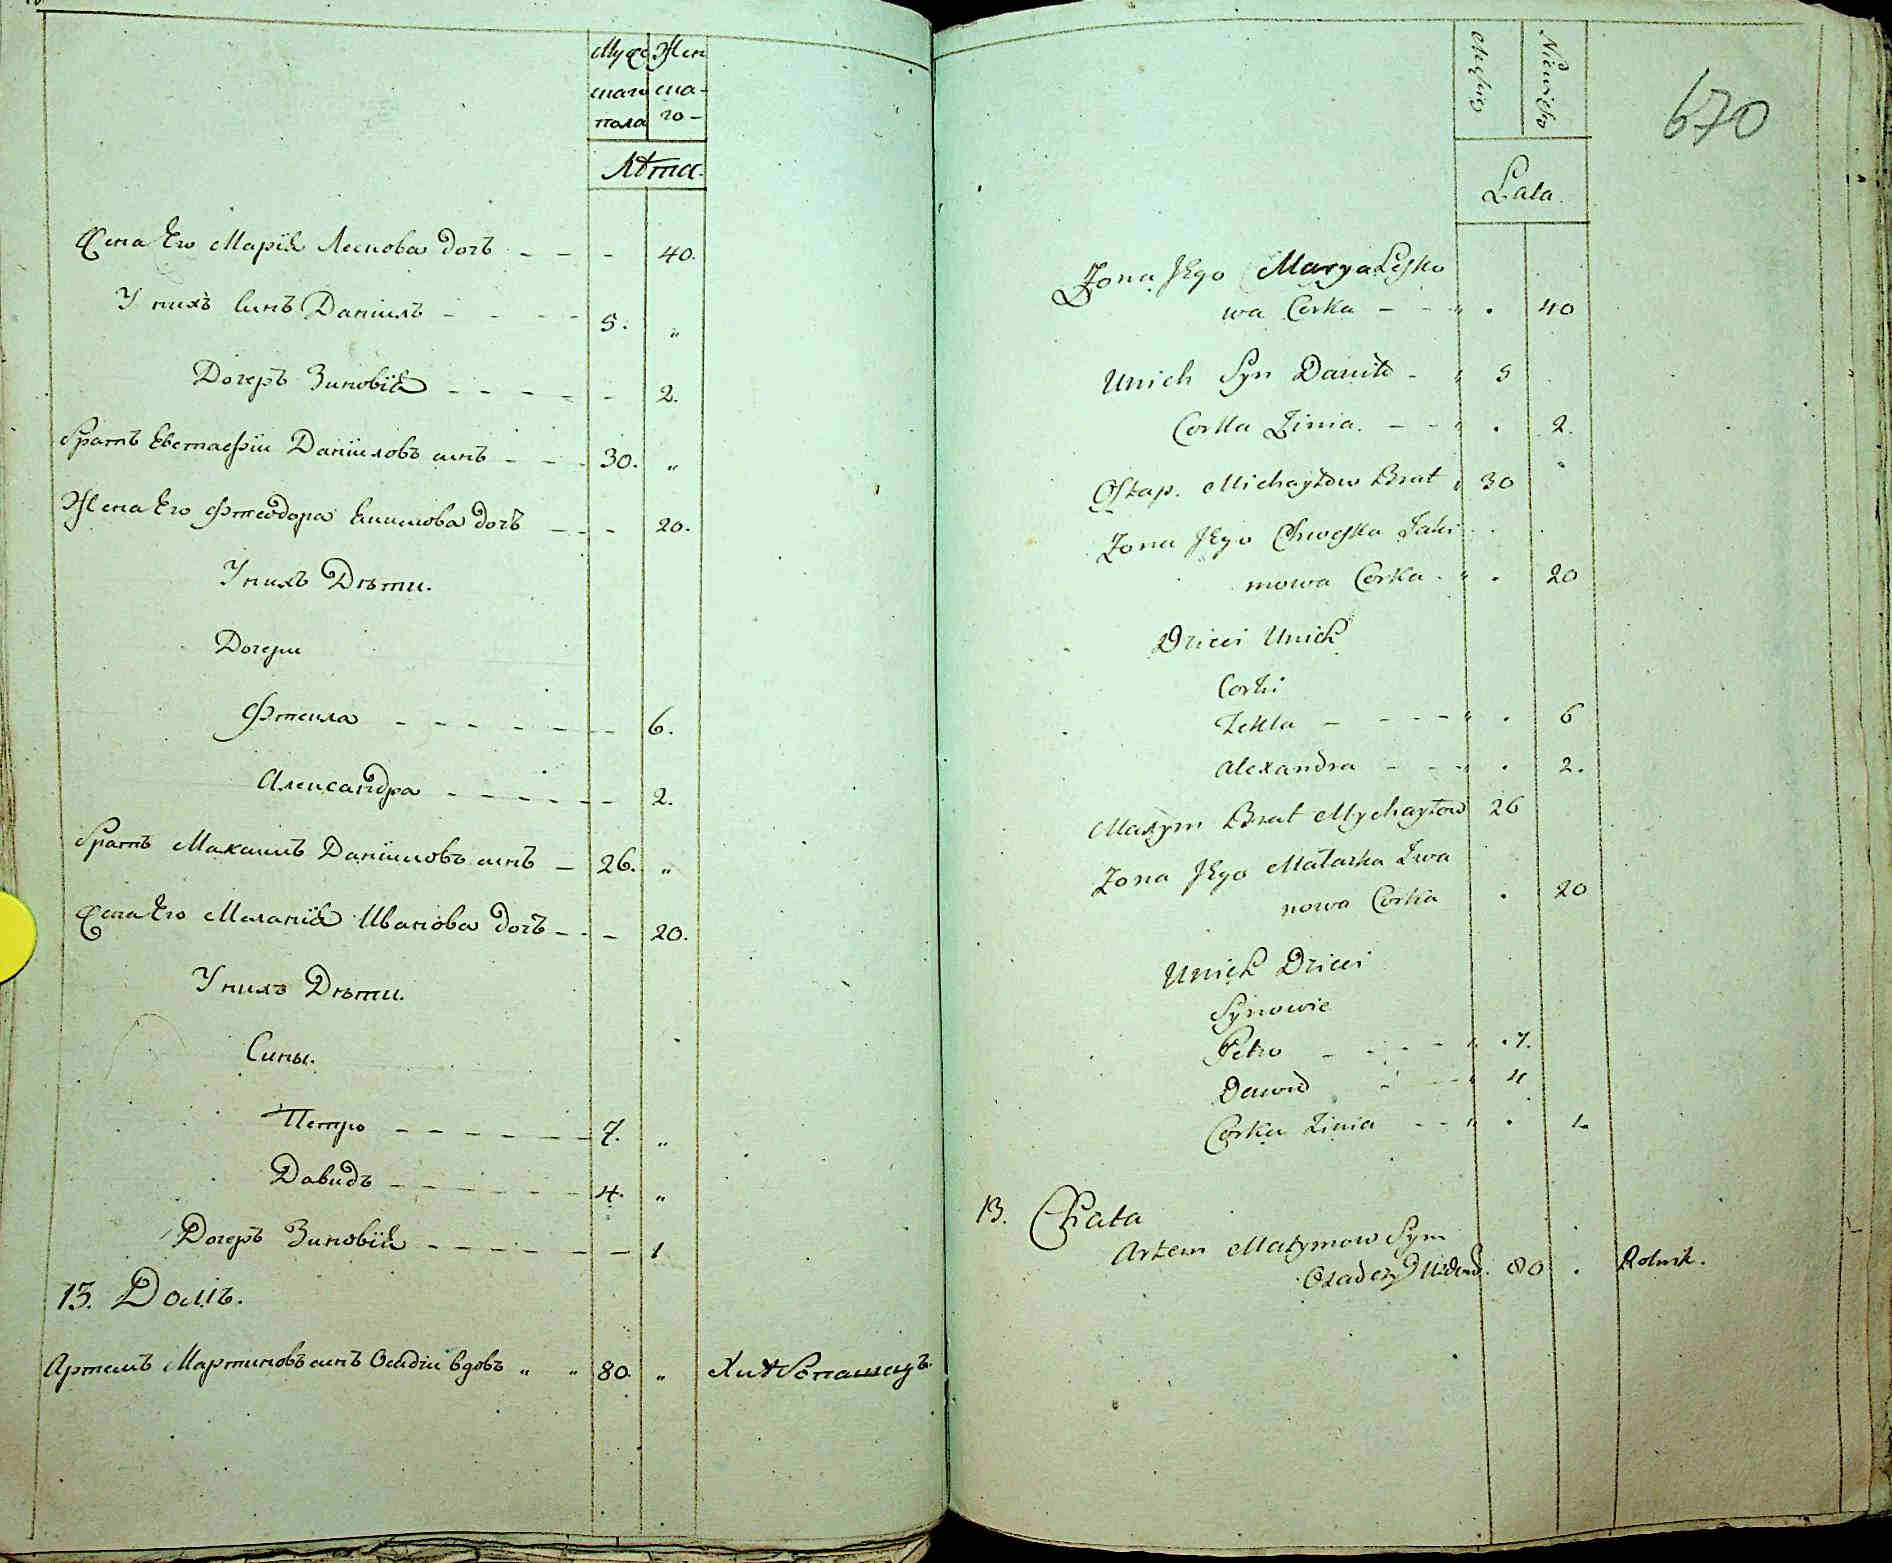 Мужескаго пола
Женскаго
Лѣта
Жена Его Марїя Лескова дочь - - - 40.
У нихъ Синъ Данїилъ - - - - 5. "
Дочеръ Зиновїя - - - - - 2.
Братъ Евстафїи Данїиловъ синъ - - - 30. "
Жена Его Фтеодора Екимова дочь - - - 20.
У нихъ Дѣти.
Дочери
Фтекла - - - - - - 6.
Александра - - - - - - 2.
Братъ Максимъ Данїиловъ синъ - 26. "
Жена Его Меланїя Иванова дочь - - - 20.
У нихъ Дѣти.
Сины.
Петро - - - - - - 7. "
Давидъ - - - - - - 4. "
Дочеръ Зиновїя - - - - - - 1
13. Домъ.
Артемъ Мартиновъ синъ вдовъ " " 80. " Хлѣбопашецъ.
670
Męskiey
Lata.
Zona JEgo Marya Lesko
wa Corka - - - " . 40
Unich Syn Daniło - " 5
Corka Zinia. - - " . 2.
Ostap. Michayłow Brat " 30 "
Zona JEgo Chweska Jaki
mowa Corka - " . 20
Dzieci Unich
Corki
Tekla - - - - " . 6
Alexandra - - - " . 2.
Maxym Brat Mychayłow 26
Zona JEgo Małaszka Iwa
nowa Corka . 20
Unich Dzieci
Synowie
Petro - - - - " . 7.
Dawid - - " 4
Corka Zinia - - " . 1.
13. Chata
Artem Syn
80 . Rolnik.